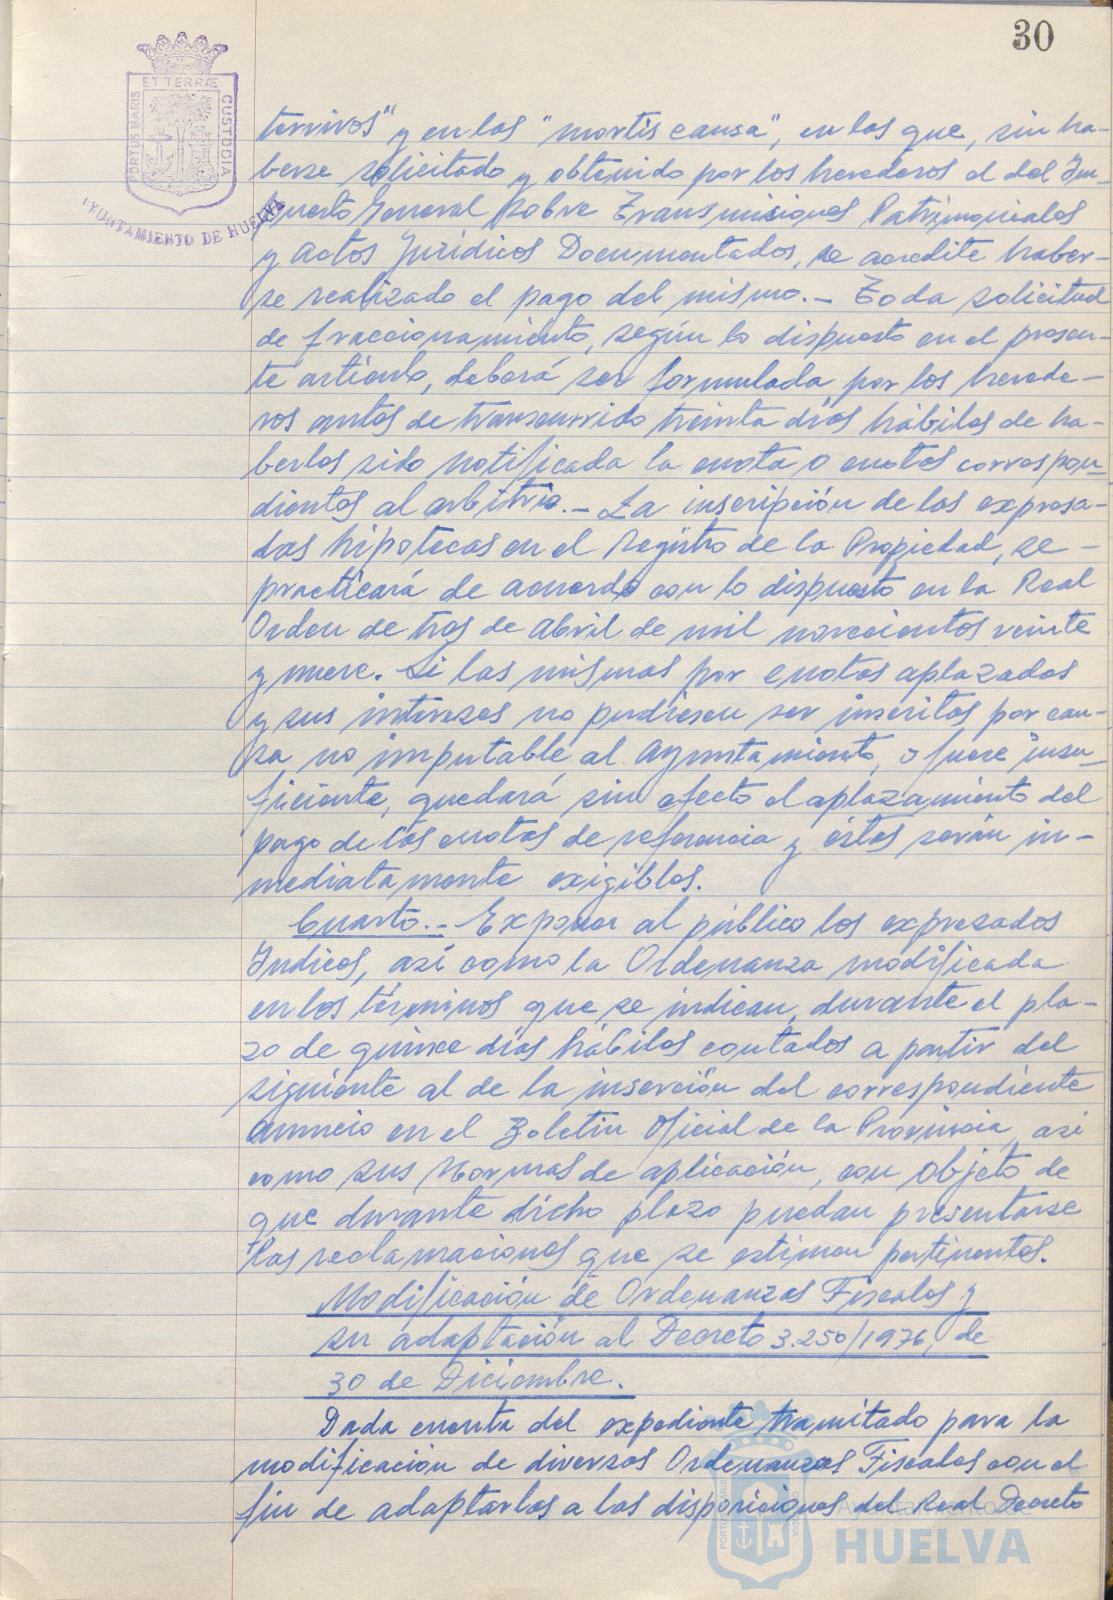 30
ET TERRÆ
PORTUS MARIS
CUSTODIA
AYUNTAMIENTO DE HUELVA
tervivos" y en las "mortis causa", en las que, sin ha-
berse solicitado y obtenido por los herederos el del Im-
puesto General sobre Transmisiones Patrimoniales
y Actos Jurídicos Documentados, se acredite haber-
se realizado el pago del mismo.- Toda solicitud
de fraccionamiento, según lo dispuesto en el presen-
te artículo, deberá ser formulada por los herede-
ros antes de transcurrido treinta días hábiles de ha-
berles sido notificada la cuota o cuotas correspon-
dientes al arbitrio.- La inscripción de las expresa-
das hipotecas en el Registro de la Propiedad, se-
practicará de acuerdo con lo dispuesto en la Real
Orden de tres de Abril de mil novecientos veinte
y nueve. Si las mismas por cuotas aplazadas
y sus intereses no pudiesen ser inscritas por cau-
sa no imputable al Ayuntamiento, o fuere insu-
ficiente, quedará sin efecto el aplazamiento del
pago de las cuotas de referencia y éstas serán in-
mediatamente exigibles.
Cuarto.- Exponer al público los expresados
Indices, así como la Ordenanza modificada
en los términos que se indican, durante el pla-
zo de quince días hábiles contados a partir del
siguiente al de la inserción del correspondiente
anuncio en el Boletin Oficial de la Provincia, asi
como sus Normas de aplicación, con objeto de
que durante dicho plazo puedan presentarse
las reclamaciones que se estimen pertinentes.
Modificación de Ordenanzas Fiscales y
su adaptación al Decreto 3.250/1976, de
30 de Diciembre.
Dada cuenta del expediente tramitado para la
modificación de diversas Ordenanzas Fiscales con el
fin de adaptarlas a las disposiciones del Real Decreto
Ayuntamiento de
HUELVA